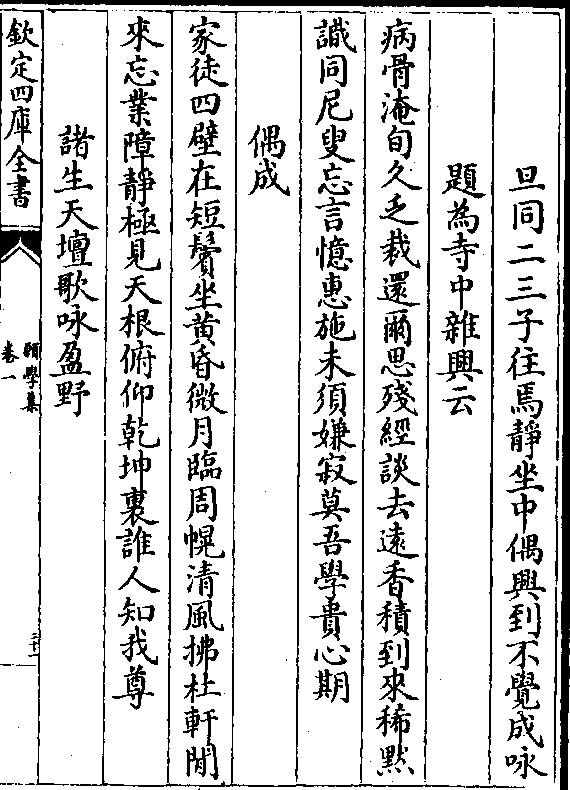 旦同二三子往焉靜坐中偶興到不覺成咏
題為寺中雜興云
病骨淹旬久乏裁還爾思殘經談去遠香積到來稀黙
識同尼叟忘言憶惠施未須嫌寂莫吾學貴心期
偶成
家徒四壁在短鬢坐黄昏微月臨周幌清風拂杜軒閒
來忘業障靜極見天根俯仰乾坤裏誰人知我尊
諸生天壇歌咏盈野
欽定四庫全書
願學集
卷一